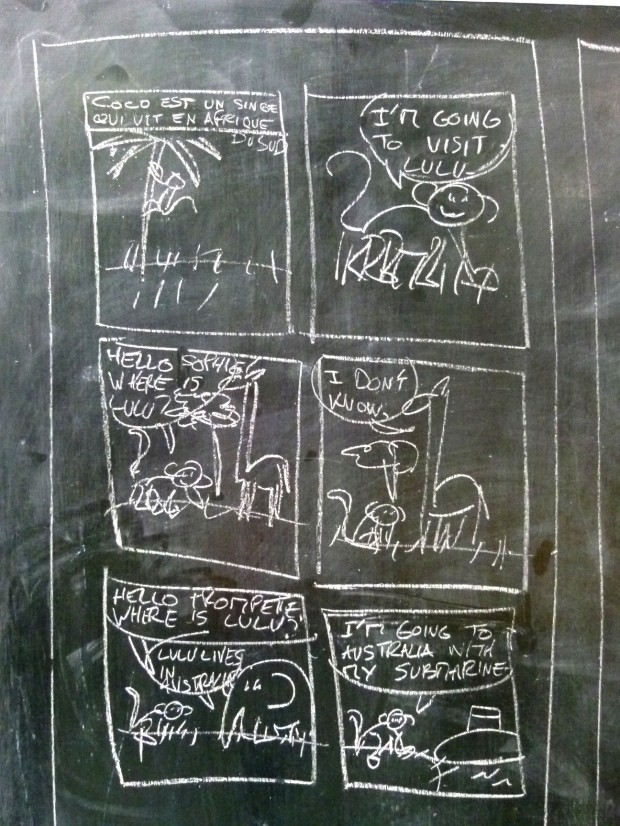 COCO EST UN SINGE
QUI VIT EN AFRIQUE
DU SUD
I'M GOING
TO VISIT
LULU
HELLO SOPHIE
WHERE IS
LULU?
I DON'T
KNOW
HELLO TROMPETTE
WHERE IS LULU?
LULU LIVES
IN
AUSTRALIA
I'M GOING TO
AUSTRALIA WITH
MY SUBMARINE